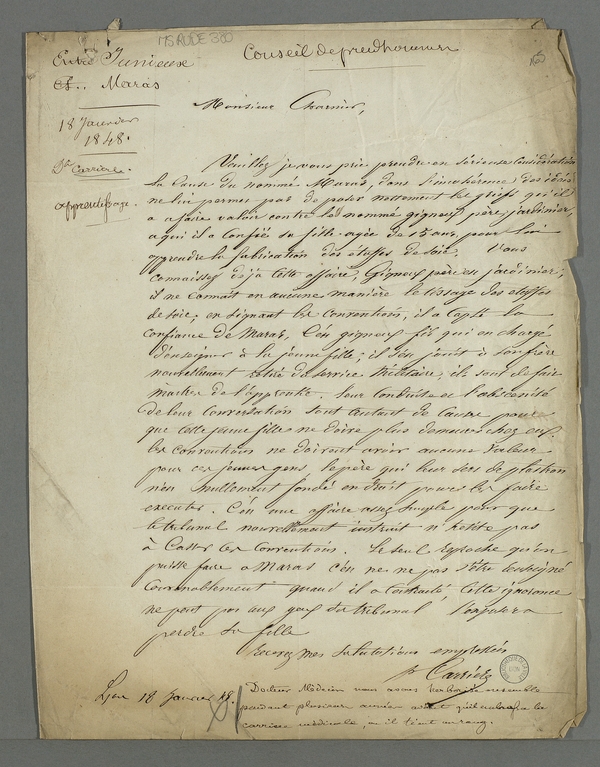 MS RUDE 380
Conseil de prudhommes
Entre Junieux
et.. Maras
18 Janvier
1848.
Dr. Carrier.
apprentissage.
Monsieur Charnier,
Veuillez je vous prie prendre en sérieuse considération
la Cause du nommé Maras, dont l'incohérence des idées
ne lui permet pas de poser nettement les griefs qu'il
a a faire valoir contre le nommé gigneux père, jardinier,
a qui il a Confié sa fille agée de 15 ans, pour lui
apprendre la fabrication des étoffes de soie. Vous
connaissez déja cette affaire, Gigneux père est jardinier,
il ne connait en aucune manière le tissage des etoffes
de soie, en signant les Conventions, il a Capté la
Confiance de Maras, C'en gigneux fils qui en chargé
d'enseigner à la jeune fille; il s'en joint à son frère
nouvellement retiré du service Militaire, ils sont de fait
maitres de l'apprentie. Leur Conduite et l'obscénité
de leur Conversation sont autant de Causes pour
que cette jeune fille ne doive plus demeurer chez eux.
les conventions ne doivent avoir aucune valeur
pour ces jeunes gens, le père qui leur sert de plastron
n'en nullement fondé en droit pour les faire
executer. C'en une affaire assez simple pour que
le tribunal nouvellement instruit n'hésite pas
à Casser les Conventions. Le seul reproche qu'on
puisse faire a Maras c'en ne pas s'être renseigné
Convenablement quand il a Contracté, cette ignorance
ne peut pas aux yeux du tribunal l'exposer a
perdre sa fille
Recevez mes salutations empressées
Carrier
Lyon 18 Janvier 48.
Docteur Médecin nous avons herborisé ensemble
pendant plusieurs années avant qu'il embrassa la
carrière médicale, ou il tient un rang.